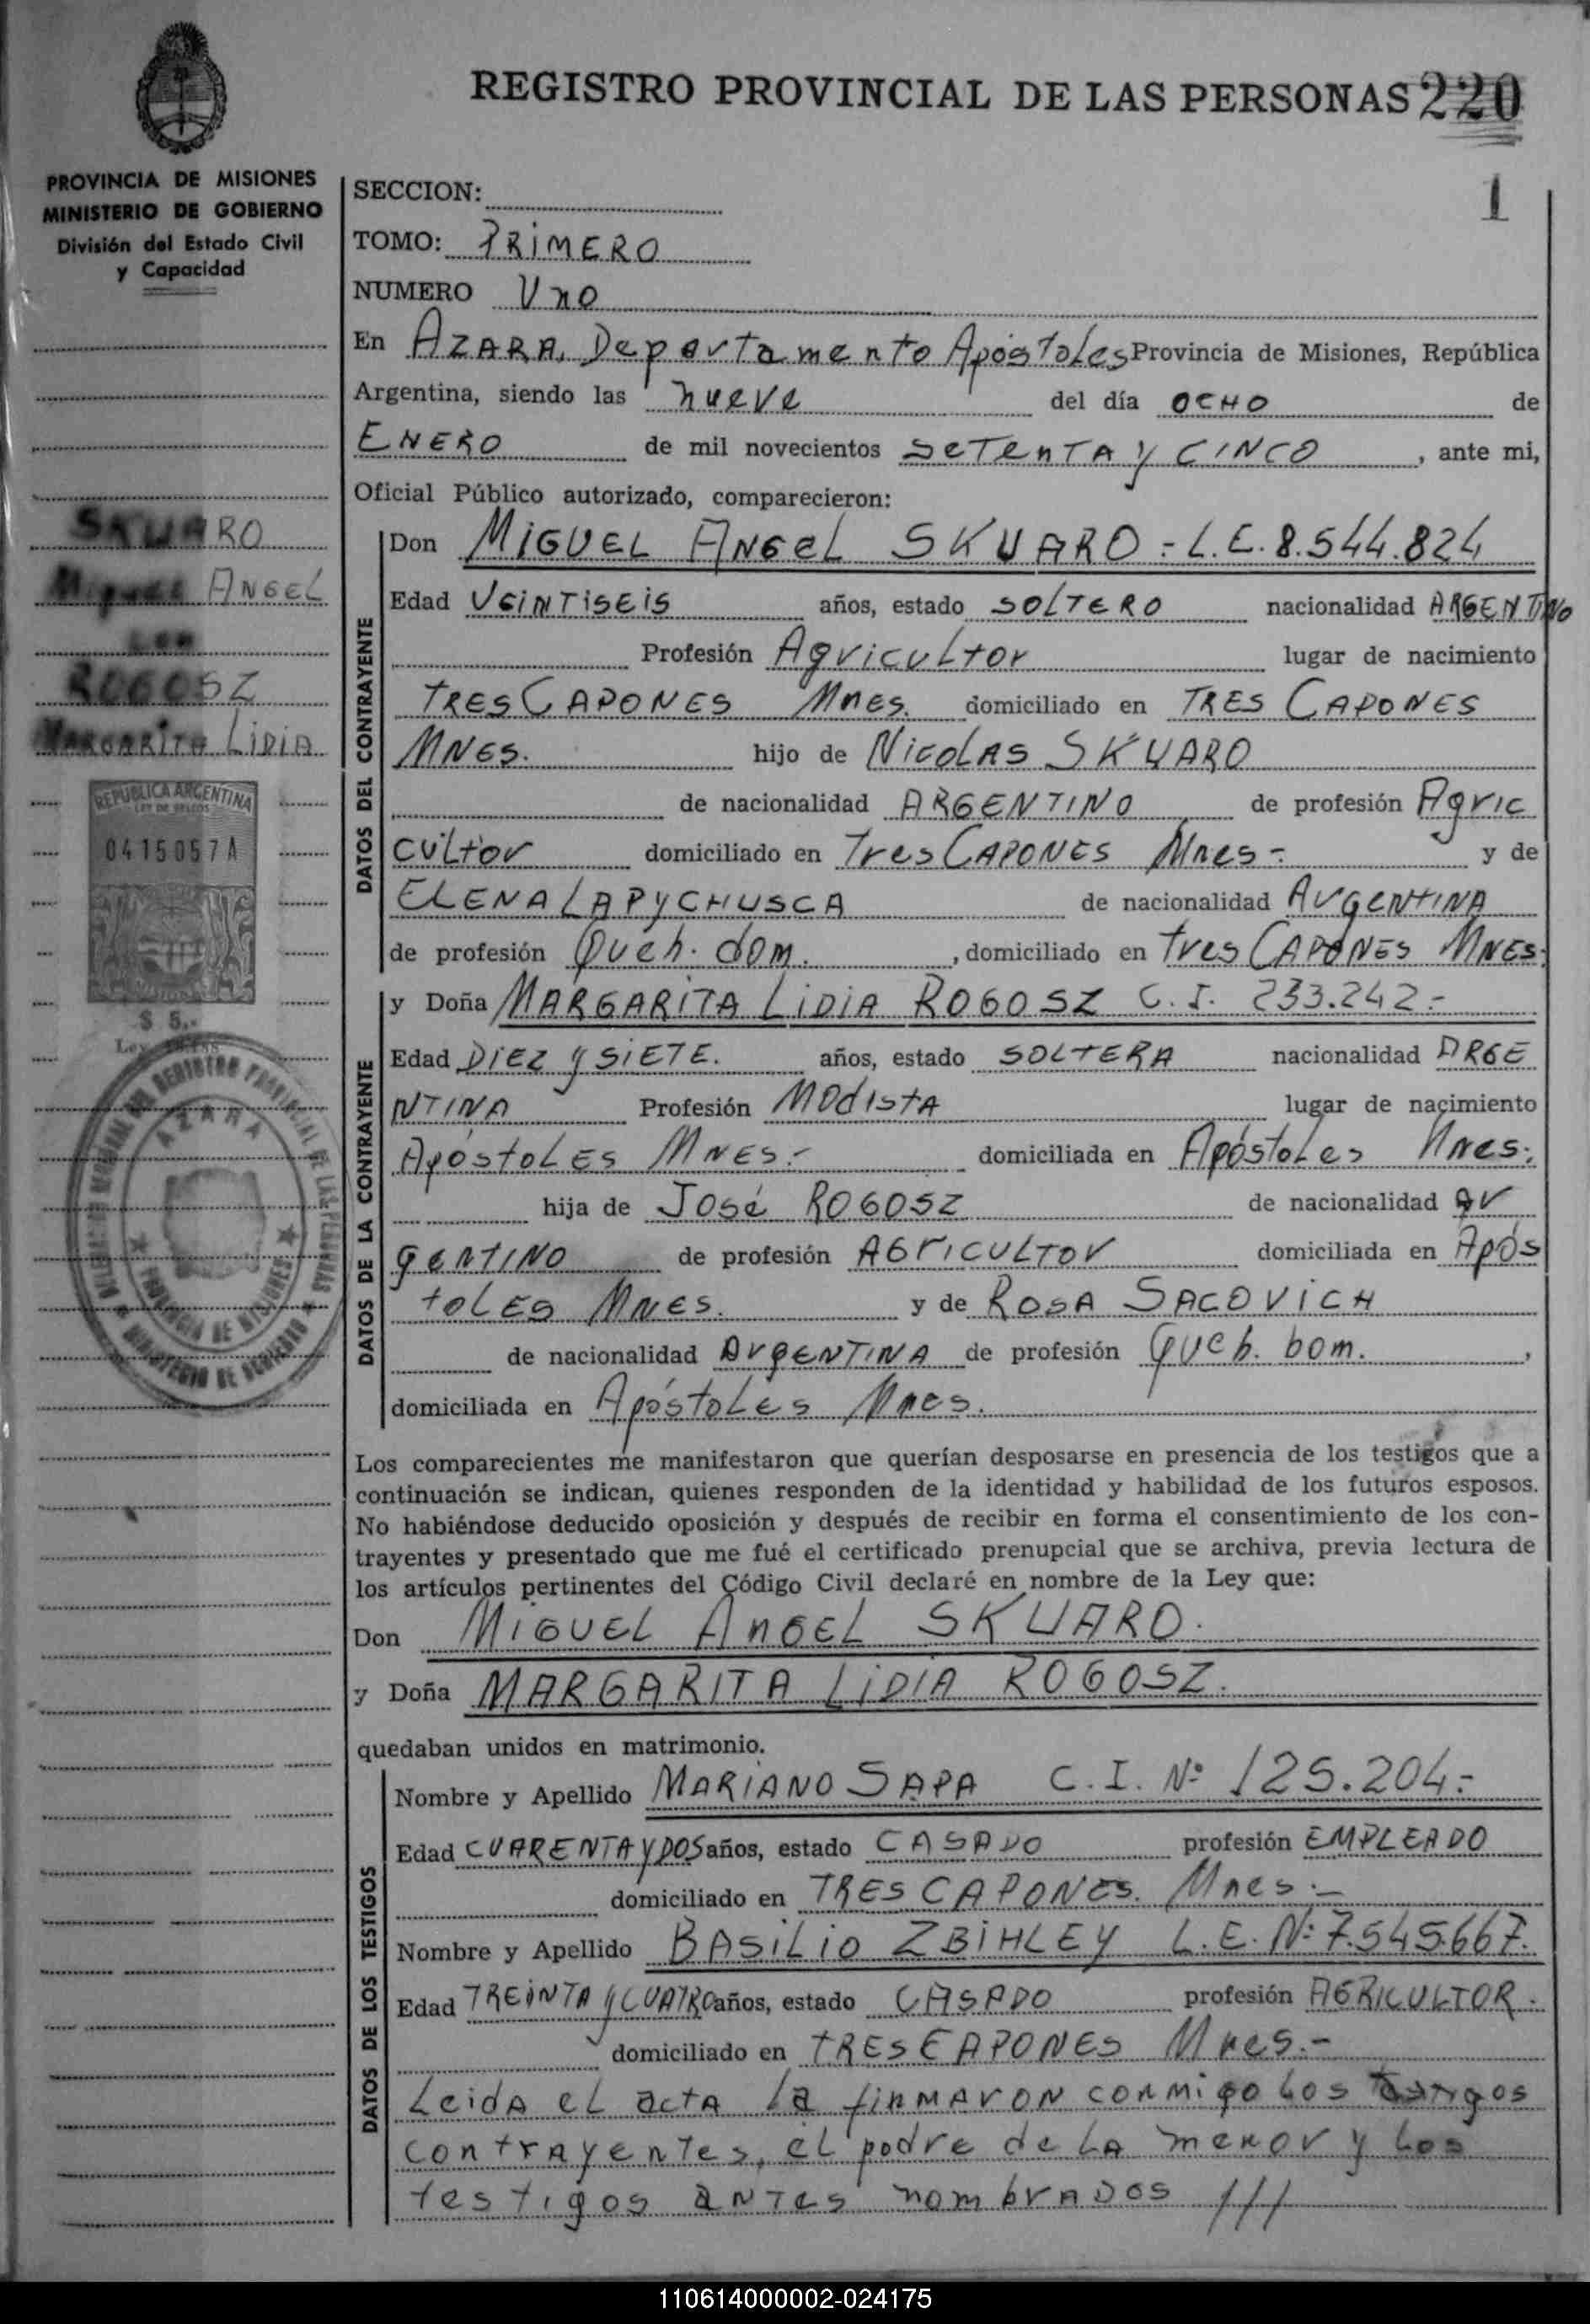 REGISTRO PROVINCIAL DE LAS PERSONAS 220
1
PROVINCIA DE MISIONES
MINISTERIO DE GOBIERNO
División del Estado Civil
y Capacidad
SKUARO
Miguel ANGEL
con
ROGOSZ
MARGARITA LiDiA
REPUBLICA ARGENTINA
LEY DE SELLOS
0415057A
$ 5,-
Ley
AZARA
PROVINCIA DE MISIONES
SECCION:
TOMO: PRiMERO
NUMERO Uno
En AZARA, Departamento Apóstoles Provincia de Misiones, República
Argentina, siendo las nueve del día OCHO de
ENERO de mil novecientos SETENTA Y CINCO , ante mi,
Oficial Público autorizado, comparecieron:
DATOS DEL CONTRAYENTE
Don MiGUEL ANGEL SKUARO - L.E. 8.544.824
Edad VEiNTiSEiS años, estado SOLTERO nacionalidad ARGENTINO
Profesión Agricultor lugar de nacimiento
TRES CAPONES Mnes. domiciliado en TRES CAPONES
MNES. hijo de NicoLAS SKUARO
de nacionalidad ARGENTINO de profesión Agric
cultor domiciliado en Tres CAPONES Mnes - y de
ELENA LAPYCHUSCA de nacionalidad ArgENTINA
de profesión Queh. dom. , domiciliado en tres CAPONES MNES.
DATOS DE LA CONTRAYENTE
y Doña MARGARITA LiDiA ROGOSZ C.I. 233.242 -
Edad DiEZ y SiETE. años, estado SOLTERA nacionalidad ARGE
NTINA Profesión MOdistA lugar de nacimiento
Apóstoles MNES.- domiciliada en Apóstoles Mnes.
hija de José ROGOSZ de nacionalidad Ar
gENTINO de profesión AGriCULTOr domiciliada en Após
toLES MNES. y de ROSA SACOViCH
de nacionalidad ArgENTINA de profesión Queh. Dom. ,
domiciliada en Apóstoles Mnes.
Los comparecientes me manifestaron que querían desposarse en presencia de los testigos que a
continuación se indican, quienes responden de la identidad y habilidad de los futuros esposos.
No habiéndose deducido oposición y después de recibir en forma el consentimiento de los con-
trayentes y presentado que me fué el certificado prenupcial que se archiva, previa lectura de
los artículos pertinentes del Código Civil declaré en nombre de la Ley que:
Don MIGUEL ANGEL SKUARO.
y Doña MARGARITA LiDIA ROGOSZ.
quedaban unidos en matrimonio.
DATOS DE LOS TESTIGOS
Nombre y Apellido MARIANO SAPA C.I. Nº 125.204.-
Edad CUARENTA Y DOS años, estado CASADO profesión EMPLEADO
domiciliado en TRES CAPONES. Mnes.-
Nombre y Apellido BASiLiO ZBiHLEY L.E. Nº 7.545.667.
Edad TREiNTA y CUATRO años, estado CASADO profesión AGRICULTOR.
domiciliado en TRES CAPONES Mnes.-
Leida el acta la firmaron conmigo los
contrayentes, el padre de la menor y los
testigos antes nombrados ///
110614000002-024175